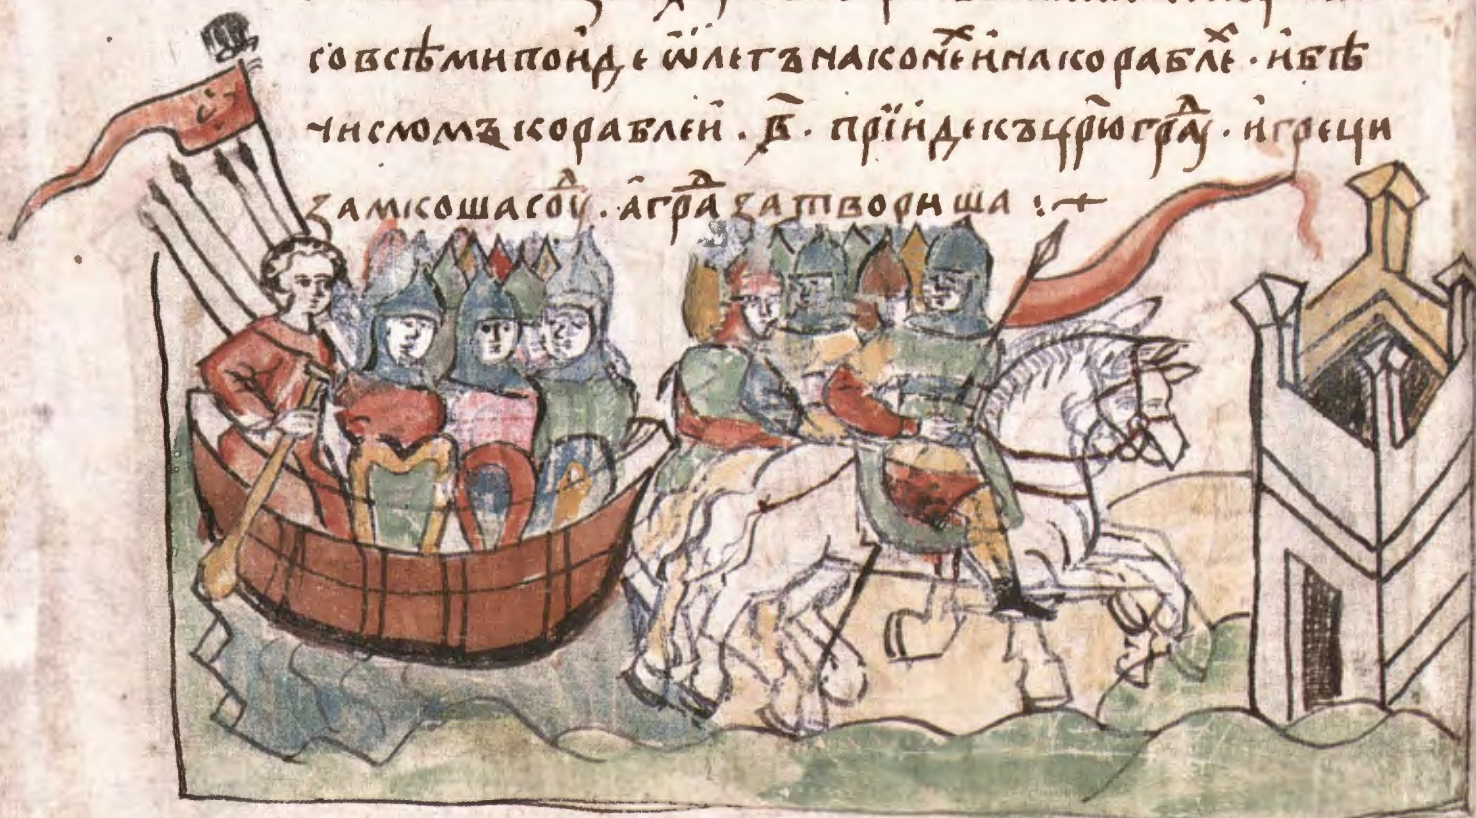 со всѣми поиде ѡлегъ на конеⷯ и на кораблеⷯ · и бѣ
числомъ кораблеи · в҃ · прїиде къ цр҃югрⷣаꙋ · и греци
замкоша соуⷣ · а граⷣ затвориша :+